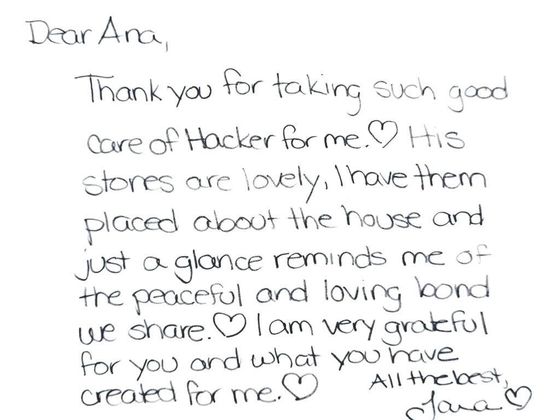 Dear Ana,
Thank you for taking such good
care of Hacker for me.♡ His
stones are lovely, I have them
placed about the house and
just a glance reminds me of
the peaceful and loving bond
we share.♡ I am very grateful
for you and what you have
created for me.♡
All the best,
Jana ♡